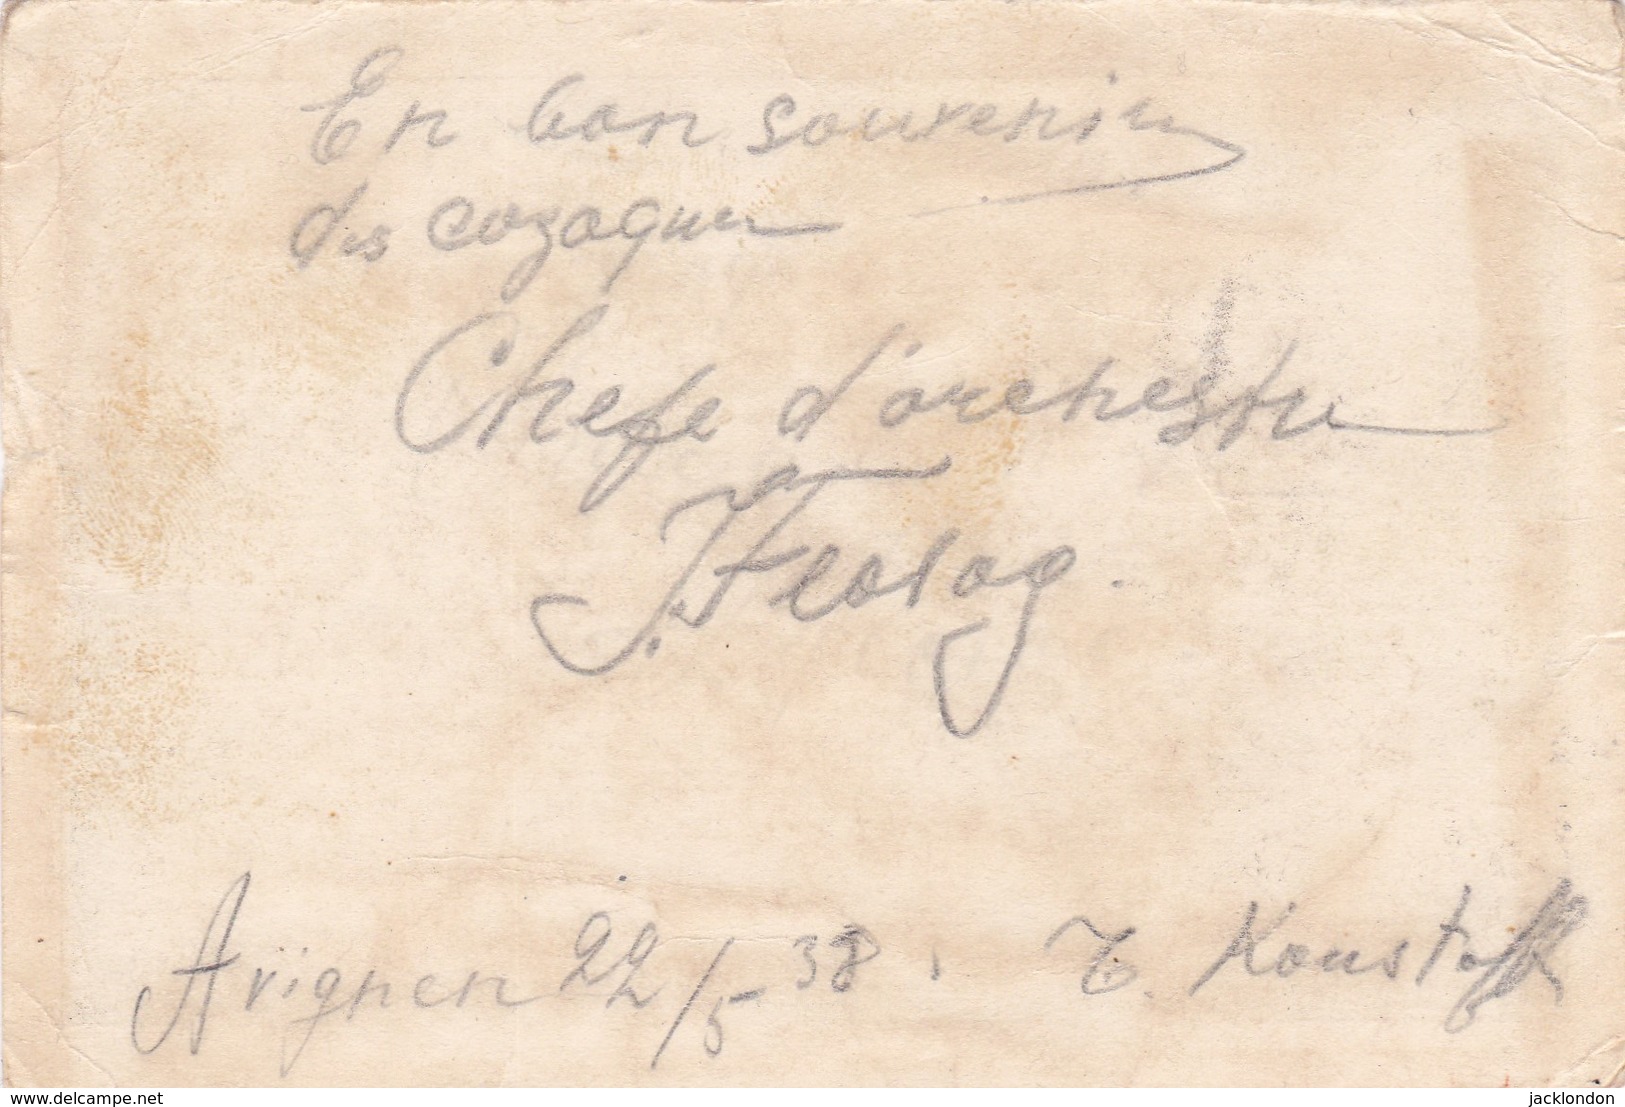 En bon souvenir
des cozaques
Chefe d'orchestre
Avignon 22/5 38.
Konstoff
delcampe.net
jacklondon